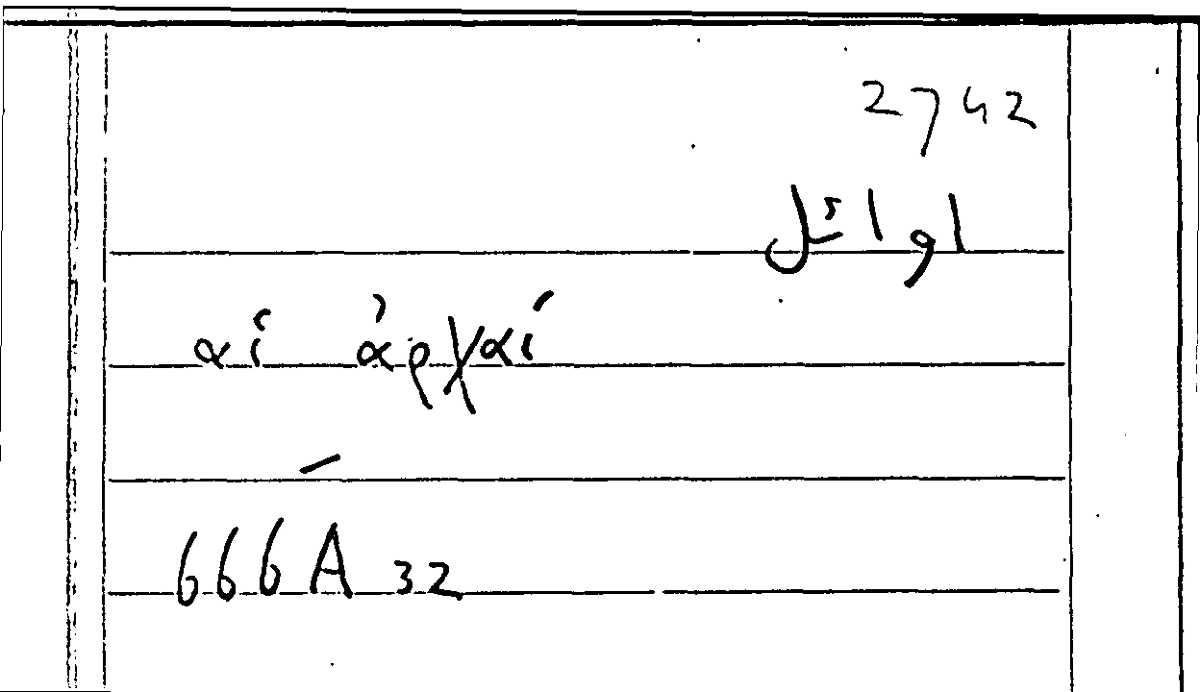 2742
اوائل
αἱ ἀρχαί
–
666A 32